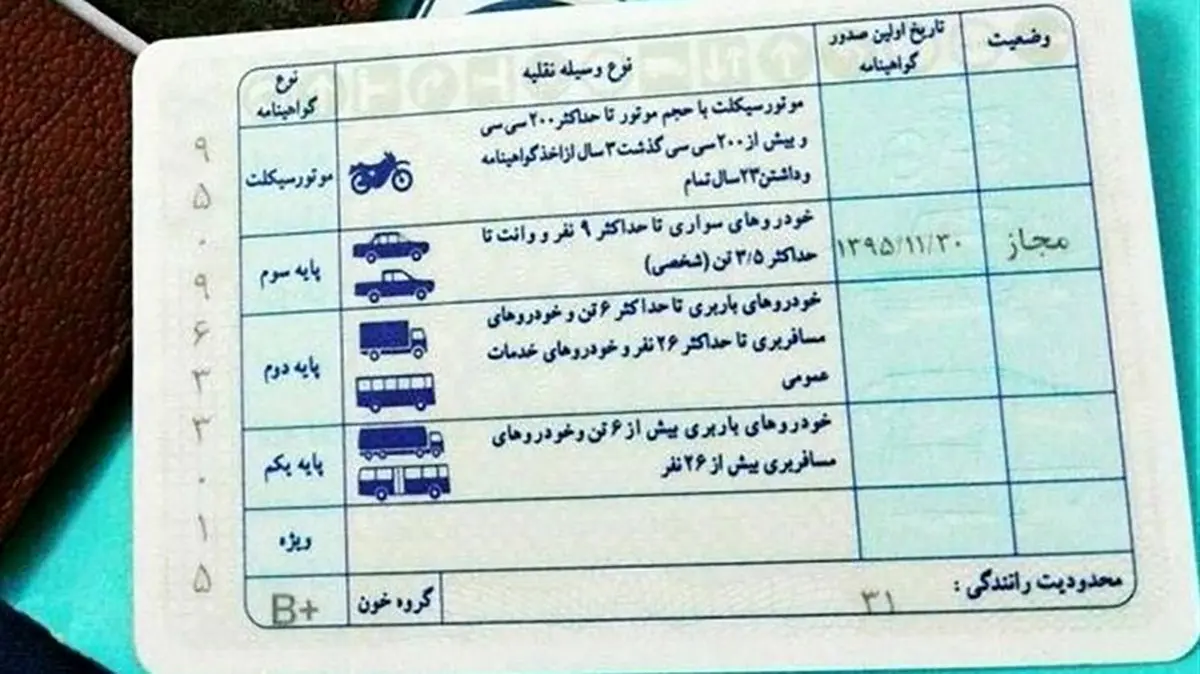 نوع گواهینامه
نوع وسیله نقلیه
تاریخ اولین صدور گواهینامه
وضعیت
موتورسیکلت
موتورسیکلت با حجم موتور تا حداکثر ۲۰۰ سی سی
و بیش از ۲۰۰ سی سی گذشت ۳ سال از اخذ گواهینامه
و داشتن ۲۳ سال تمام
پایه سوم
خودروهای سواری تا حداکثر ۹ نفر و وانت تا
حداکثر ۳/۵ تن (شخصی)
۱۳۹۵/۱۱/۳۰
مجاز
پایه دوم
خودروهای باربری تا حداکثر ۶ تن و خودروهای
مسافربری تا حداکثر ۲۶ نفر و خودروهای خدمات
عمومی
پایه یکم
خودروهای باربری بیش از ۶ تن و خودروهای
مسافربری بیش از ۲۶ نفر
ویژه
محدودیت رانندگی :
۳۱
گروه خون
B+
۹
۵
۰
۹
۶
۳
۳
۰
۱
۵